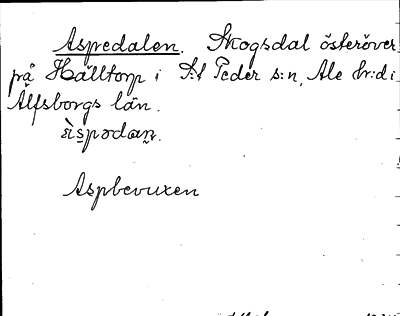 Aspedalen. Skogsdal österöver
på Hälltorp i S:t Peder s:n, Ale hr:d i
Älfsborgs län.
Aspbevuxen